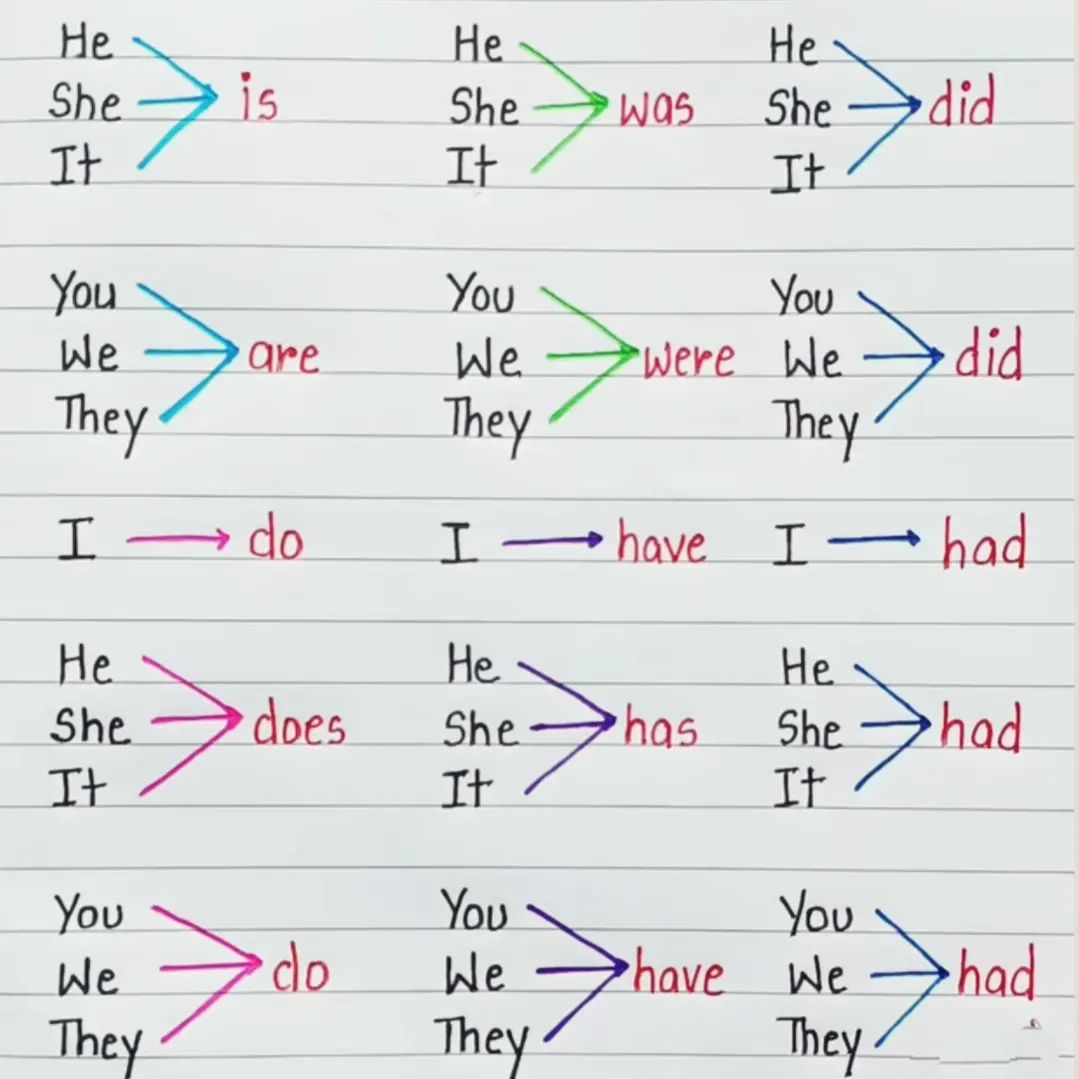 He He He
She is She was She did
It It It
You You You
We are We were We did
They They They
I do I have I had
He He He
She does She has She had
It It It
You You You
We do We have We had
They They They